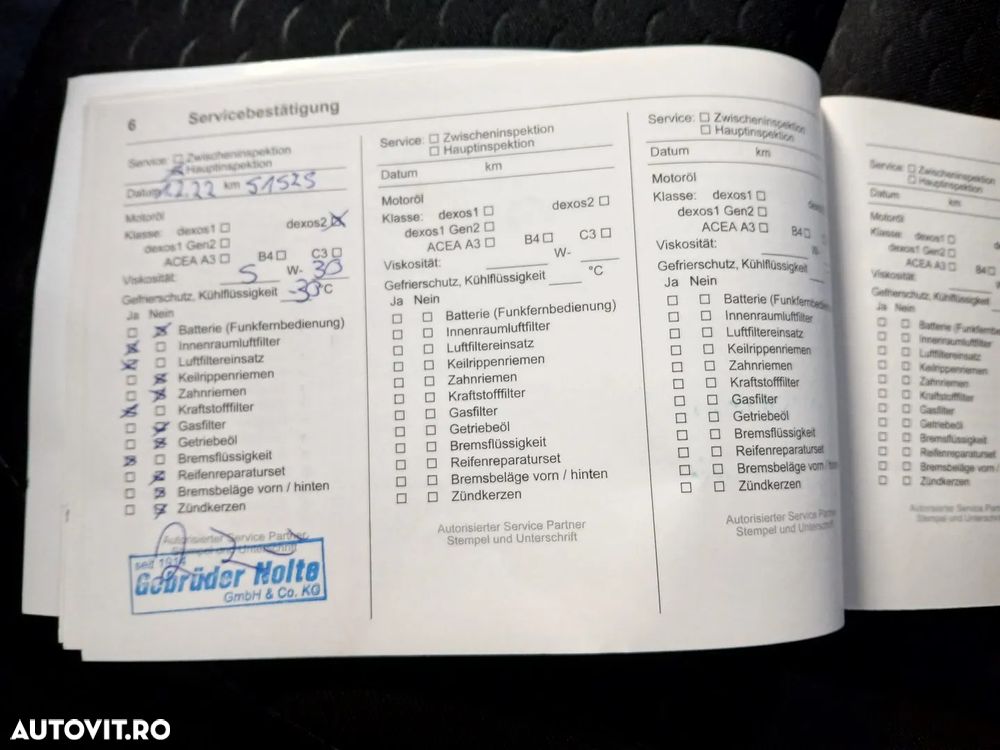 6 Servicebestätigung
Service: Zwischeninspektion
Hauptinspektion
Datum 12.22 km 51525
Motoröl
Klasse: dexos1 dexos2
dexos1 Gen2
ACEA A3 B4 C3
Viskosität: 5 W- 30
Gefrierschutz, Kühlflüssigkeit -30 °C
Ja Nein
Batterie (Funkfernbedienung)
Innenraumluftfilter
Luftfiltereinsatz
Keilrippenriemen
Zahnriemen
Kraftstofffilter
Gasfilter
Getriebeöl
Bremsflüssigkeit
Reifenreparaturset
Bremsbeläge vorn / hinten
Zündkerzen
Autorisierter Service Partner
Stempel und Unterschrift
seit 1914
Gebrüder Nolte
GmbH & Co. KG
Service: Zwischeninspektion
Hauptinspektion
Datum km
Motoröl
Klasse: dexos1 dexos2
dexos1 Gen2
ACEA A3 B4 C3
Viskosität: W-
Gefrierschutz, Kühlflüssigkeit °C
Ja Nein
Batterie (Funkfernbedienung)
Innenraumluftfilter
Luftfiltereinsatz
Keilrippenriemen
Zahnriemen
Kraftstofffilter
Gasfilter
Getriebeöl
Bremsflüssigkeit
Reifenreparaturset
Bremsbeläge vorn / hinten
Zündkerzen
Autorisierter Service Partner
Stempel und Unterschrift
Service: Zwischeninspektion
Hauptinspektion
Datum km
Motoröl
Klasse: dexos1
dexos1 Gen2
ACEA A3 B4
Viskosität: W-
Gefrierschutz, Kühlflüssigkeit
Ja Nein
Batterie (Funkfernbedien
Innenraumluftfilter
Luftfiltereinsatz
Keilrippenriemen
Zahnriemen
Kraftstofffilter
Gasfilter
Getriebeöl
Bremsflüssigkeit
Reifenreparaturset
Bremsbeläge vorn /
Zündkerzen
Autorisierter Service Partne
Stempel und Unterschrift
Service: Zwischeninspektion
Hauptinspektion
Datum km
Motoröl
Klasse: dexos1
dexos1 Gen2
ACEA A3 B4
Viskosität:
Gefrierschutz, Kühlflüssigkeit
Ja Nein
Batterie (Funkfernb
Innenraumluftfilter
Luftfiltereinsatz
Keilrippenriemen
Zahnriemen
Kraftstofffilter
Gasfilter
Getriebeöl
Bremsflüssigkeit
Reifenreparaturset
Bremsbeläge vorn / h
Zündkerzen
Autorisierter Service
Stempel und Unters
AUTOVIT.RO